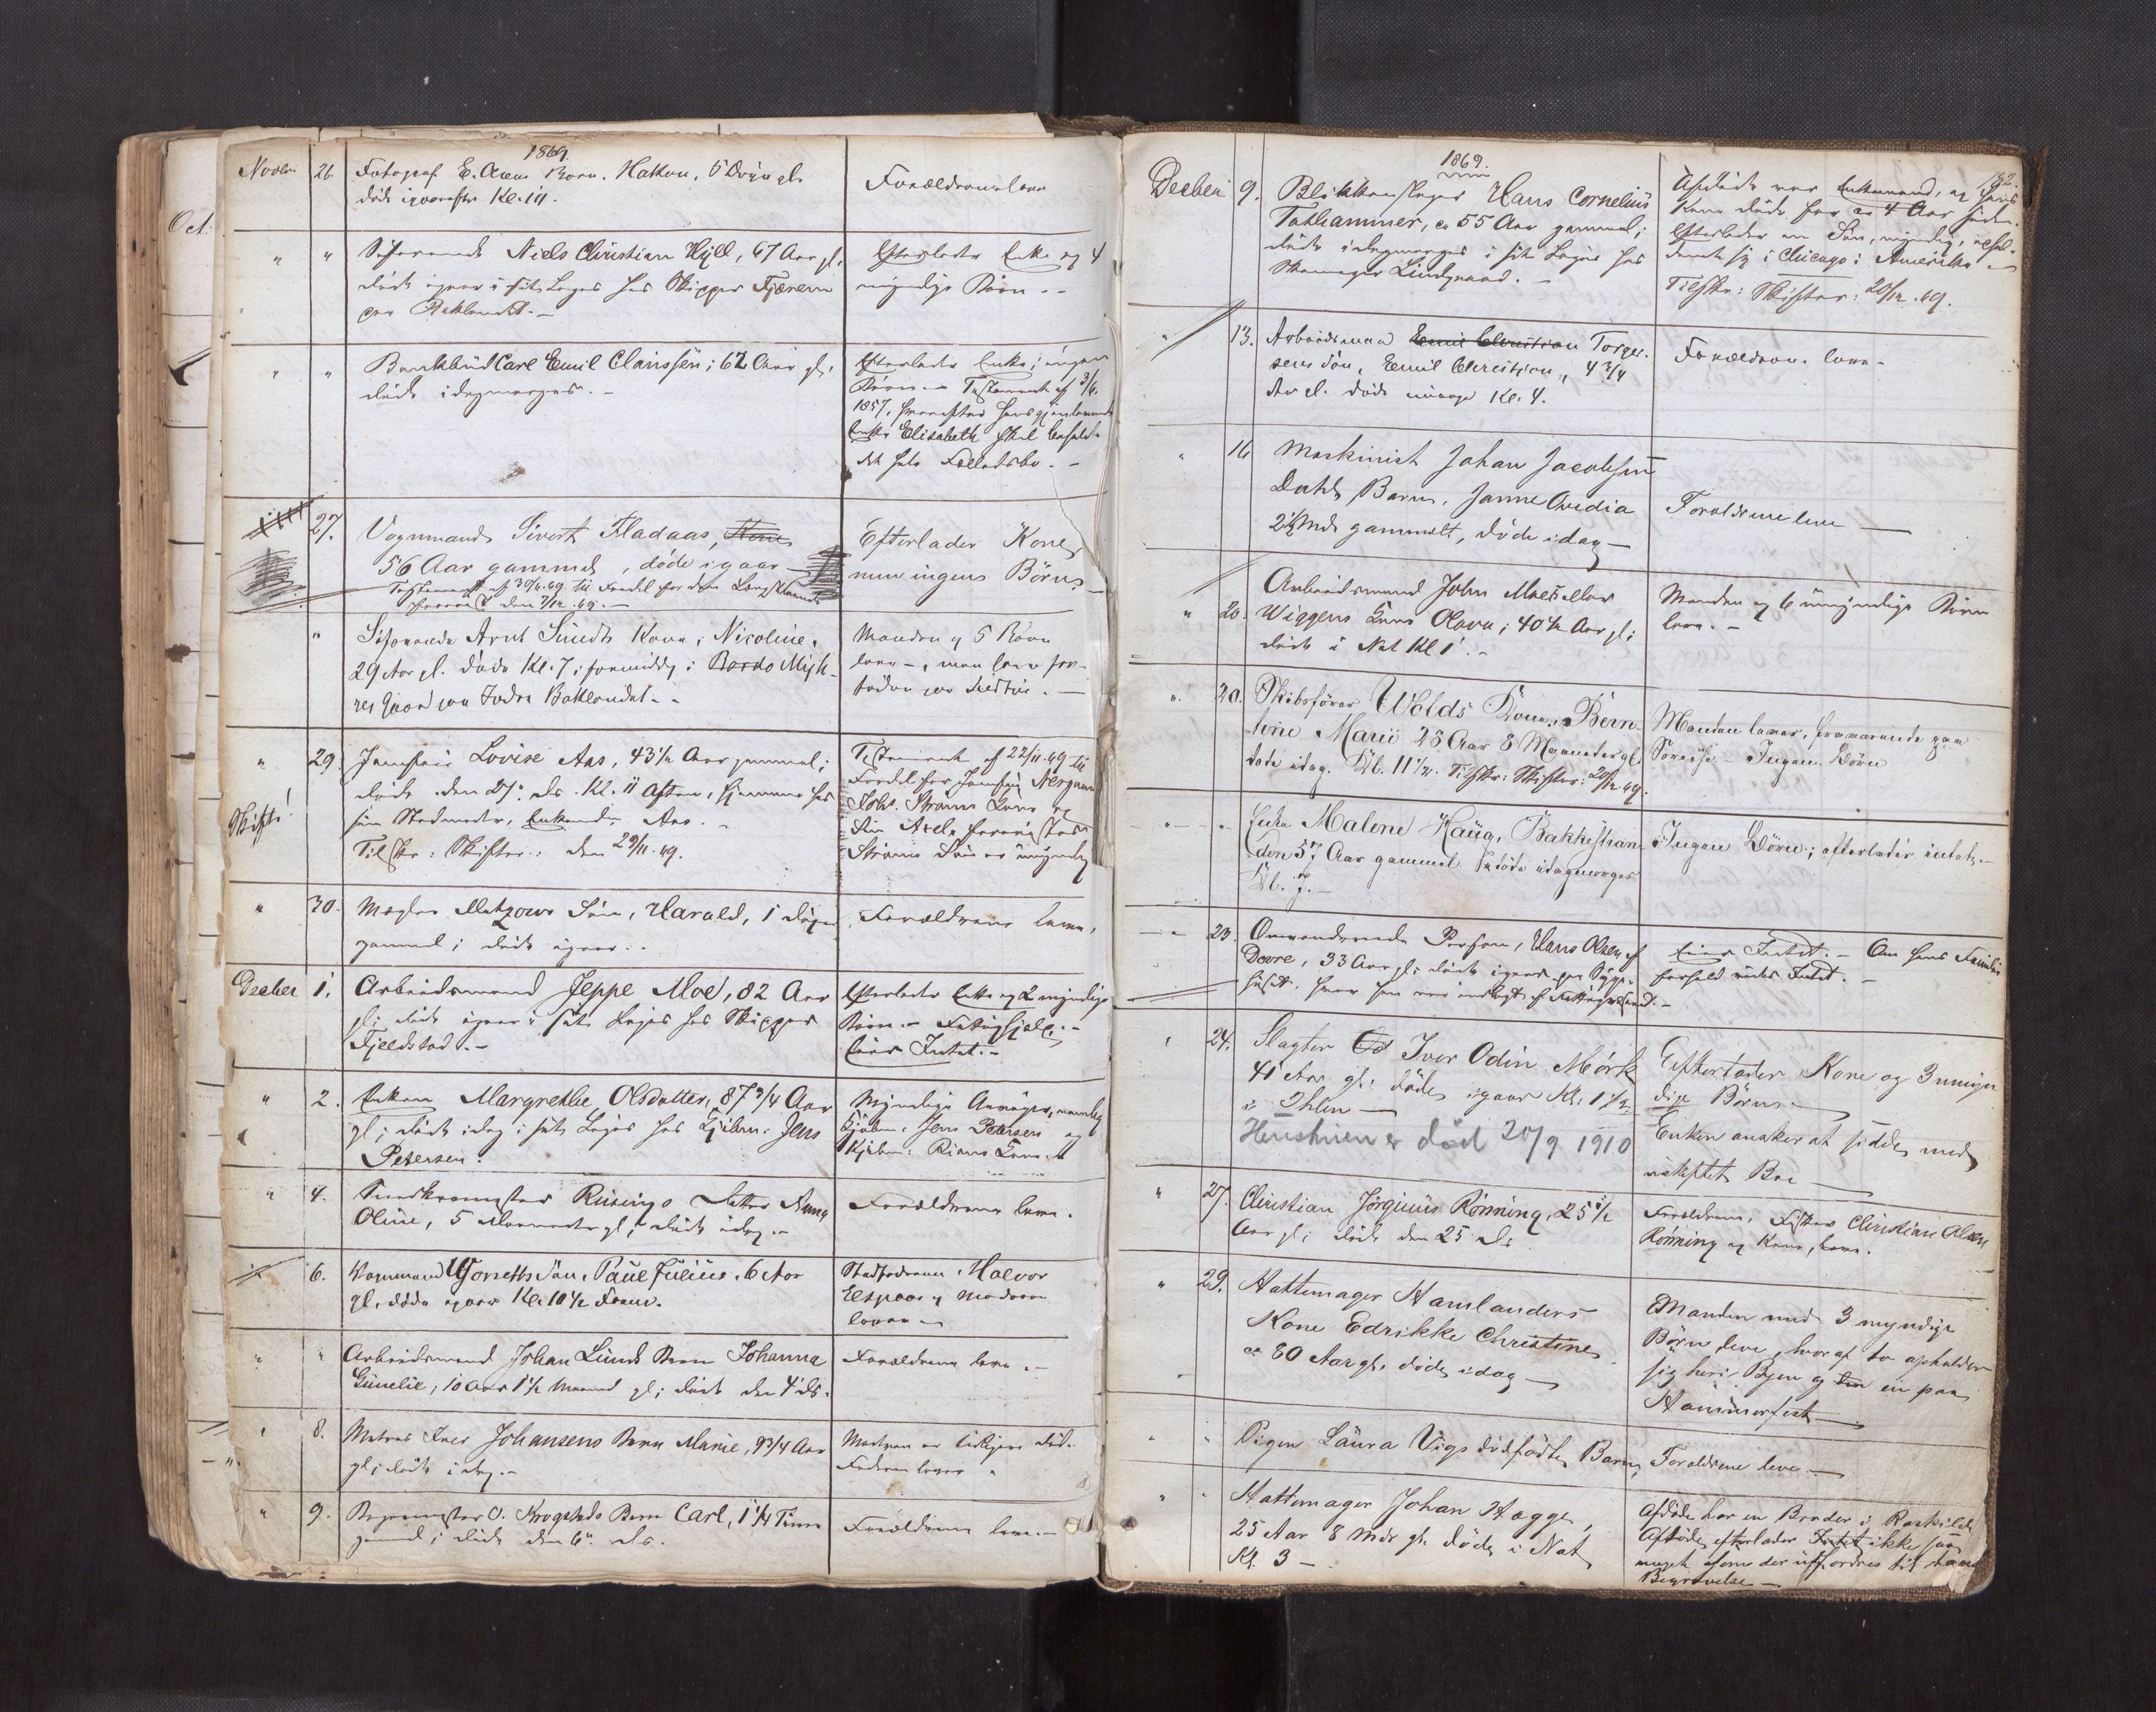 1869.
Novbr 26. Fotograf E. Aunes Barn, Hakon, 5 Døgn gl.
døde igaaraftes Kl. 11. Forældrene leve
" " Søfarende Niels Christian Hjell, 67 Aar gl.
døde igaar i sit Loges hos Skipper Fjærem
paa Baklandet. -
Efterlader Enke og 4
myndige Børn. -
" " Bankbud Carl Emil Claussen; 62 Aar gl.
døde idagmorges. -
Efterlader Enke; ingen
Børn. - Testament af 3/6.
1857, hvorefter hans gjenlevende
Enke Elisabeth skal beholde
det hele Fællesbo. -
27. Vognmand Sivert Fladaas,
56 Aar gammel, døde igaar
Testament af 30/11.69 til Fordel for den Længstlevende
den 7/12.69. -
Efterlader Kone,
men ingen Børn. -
" Søfarende Arnt Sunds Kone, Nicoline,
29 Aar gl. døde Kl. 7 i formiddag i
Gaard paa Indre Baklandet. -
Manden og 5 Børn
leve -, men
29. Jomfru Lovise Aas, 43 1/2 Aar gammel;
døde den 27. ds. Kl. 11 Aften, hjemme hos
sin Stedmoder, Enkemd. Aas. -
Skifte! Tilskr: Skifter: den 29/11.69.
Testament af 22/11.69 til
Fordel for Jomfru
Johs. Strøms Kone og
Søn Axel,
Strøms Søn er umyndig
" 30. Mægler Matzows Søn, Harald, 1 Døgn
gammel; døde igaar. -
Forældrene leve.
Decbr 1. Arbeidsmand Jeppe Moe, 82 Aar
gl; døde igaar i sit Loges hos Skipper
Fjeldstad. -
Efterlader Enke og 2 myndige
Børn. - Fattighjælp. -
Eier Intet. -
" 2. Enken Margrethe Olsdatter, 87 3/4 Aar
gl; døde idag i sit Loges hos Kjøbm. Jens
Petersen.
Myndige Arvinger, nemlig
Kjøbm. Jens Petersen og
Kjøbm. Kone.
" 4. Snedkermester Rusings Datter Anna
Oline, 5 Maaneder gl; døde idag. -
Forældrene leve.
6. Vognmand Søn, Paul Julius, 6 Aar
gl. døde igaar Kl. 10 1/2 Form.
Stedfaderen Halvor
Espaas og Moderen
lever -
" " Arbeidsmand Johan Lunds Barn Johanna
Gunelie, 10 Aar 1 1/2 Maaned gl; døde den 4' ds.
Forældrene leve. -
" 8. Matros Iver Johansens Barn Marie, 9 3/4 Aar
gl; døde idag. -
Moderen er tidligere død.
Faderen lever.
" 9. Bagermester O. Krogstads Barn Carl, 1 1/4 Time
gammel; døde den 6' ds.
Forældrene leve. -
1869.
182.
Decber 9. Blikkenslager Hans Cornelius
Tathammer, ca 55 Aar gammel;
døde idagmorges i sit Logis hos
Skomager Lindgaard. -
Afdøde var Enkemand, og hans
Kone døde for ca 4 Aar siden.
Efterlader en Søn, myndig, ophol-
dende sig i Chicago i Amerika -
Tilskr: Skifter: 20/12.69.
" 13. Arbeidsmand Emil Christian Torger-
sens Søn, Emil Christian, 4 3/4
Aar gl. døde imorges Kl. 4.
Forældrene leve -
" 16 Maskinist Johan Jacobsen
Dahls Barn, Janne Ovedia
2 1/2 Mdr gammelt, døde idag -
Forældrene leve -
" 20. Arbeidsmand John Moetellar
Wiggens Kone Olava; 40 1/2 Aar gl;
døde i Nat Kl 1. -
Manden og 6 umyndige Børn
leve. -
" 20. Skibsfører Wolds Kone, Bern-
tine Marie 28 Aar 8 Maaneder gl.
døde idag. Kl. 11 1/2. Tilskr: Skifter: 20/12.69.
Manden lever, fraværende paa
Søreise. - Ingen Børn
" " Enke Malene Haug, Bakkestran-
den 57 Aar gammel døde idagmorges
Kl. 7. -
Ingen Børn; efterlader intet. -
" 23. Omvandrende Person, Hans Olsen af
Dovre, 33 Aar gl; døde igaar paa Syge-
huset, hvor han var indlagt af Fattigvæsend. -
Eier Intet. - Om hans Familie-
forhold vides Intet. -
24. Slagter Iver Odin Mørk
41 Aar gl. døde igaar Kl. 1 1/2
i Ihlen -
Henstuen er død 20/9 1910
Efterlader Kone og 3 umyn-
dige Børn -
Enken ønsker at sidde med
uskiftet Bo -
" 27. Christian Jørginus Rønning, 25 1/2
Aar gl; døde den 25 ds
Forældrene, Fisker Christian Olsen
Rønning og Kone, leve.
" 29. Hattemager Hamlanders
Kone Edrikke Christine
ca 80 Aar gl. døde idag -
Manden med 3 myndige
Børn leve, hvoraf to opholder
sig her i Byen og en paa
Hammerfest -
" " Pigen Laura Vigs dødfødte Barn,
Forældrene leve -
" " Hattemager Johan Hægge,
25 Aar 8 Mdr gl. døde i Nat
Kl. 3 -
Afdøde har en Broder i Roskilde
Afdøde efterlader Intet ikke saa
meget som der udfordres til hans
Begravelse -